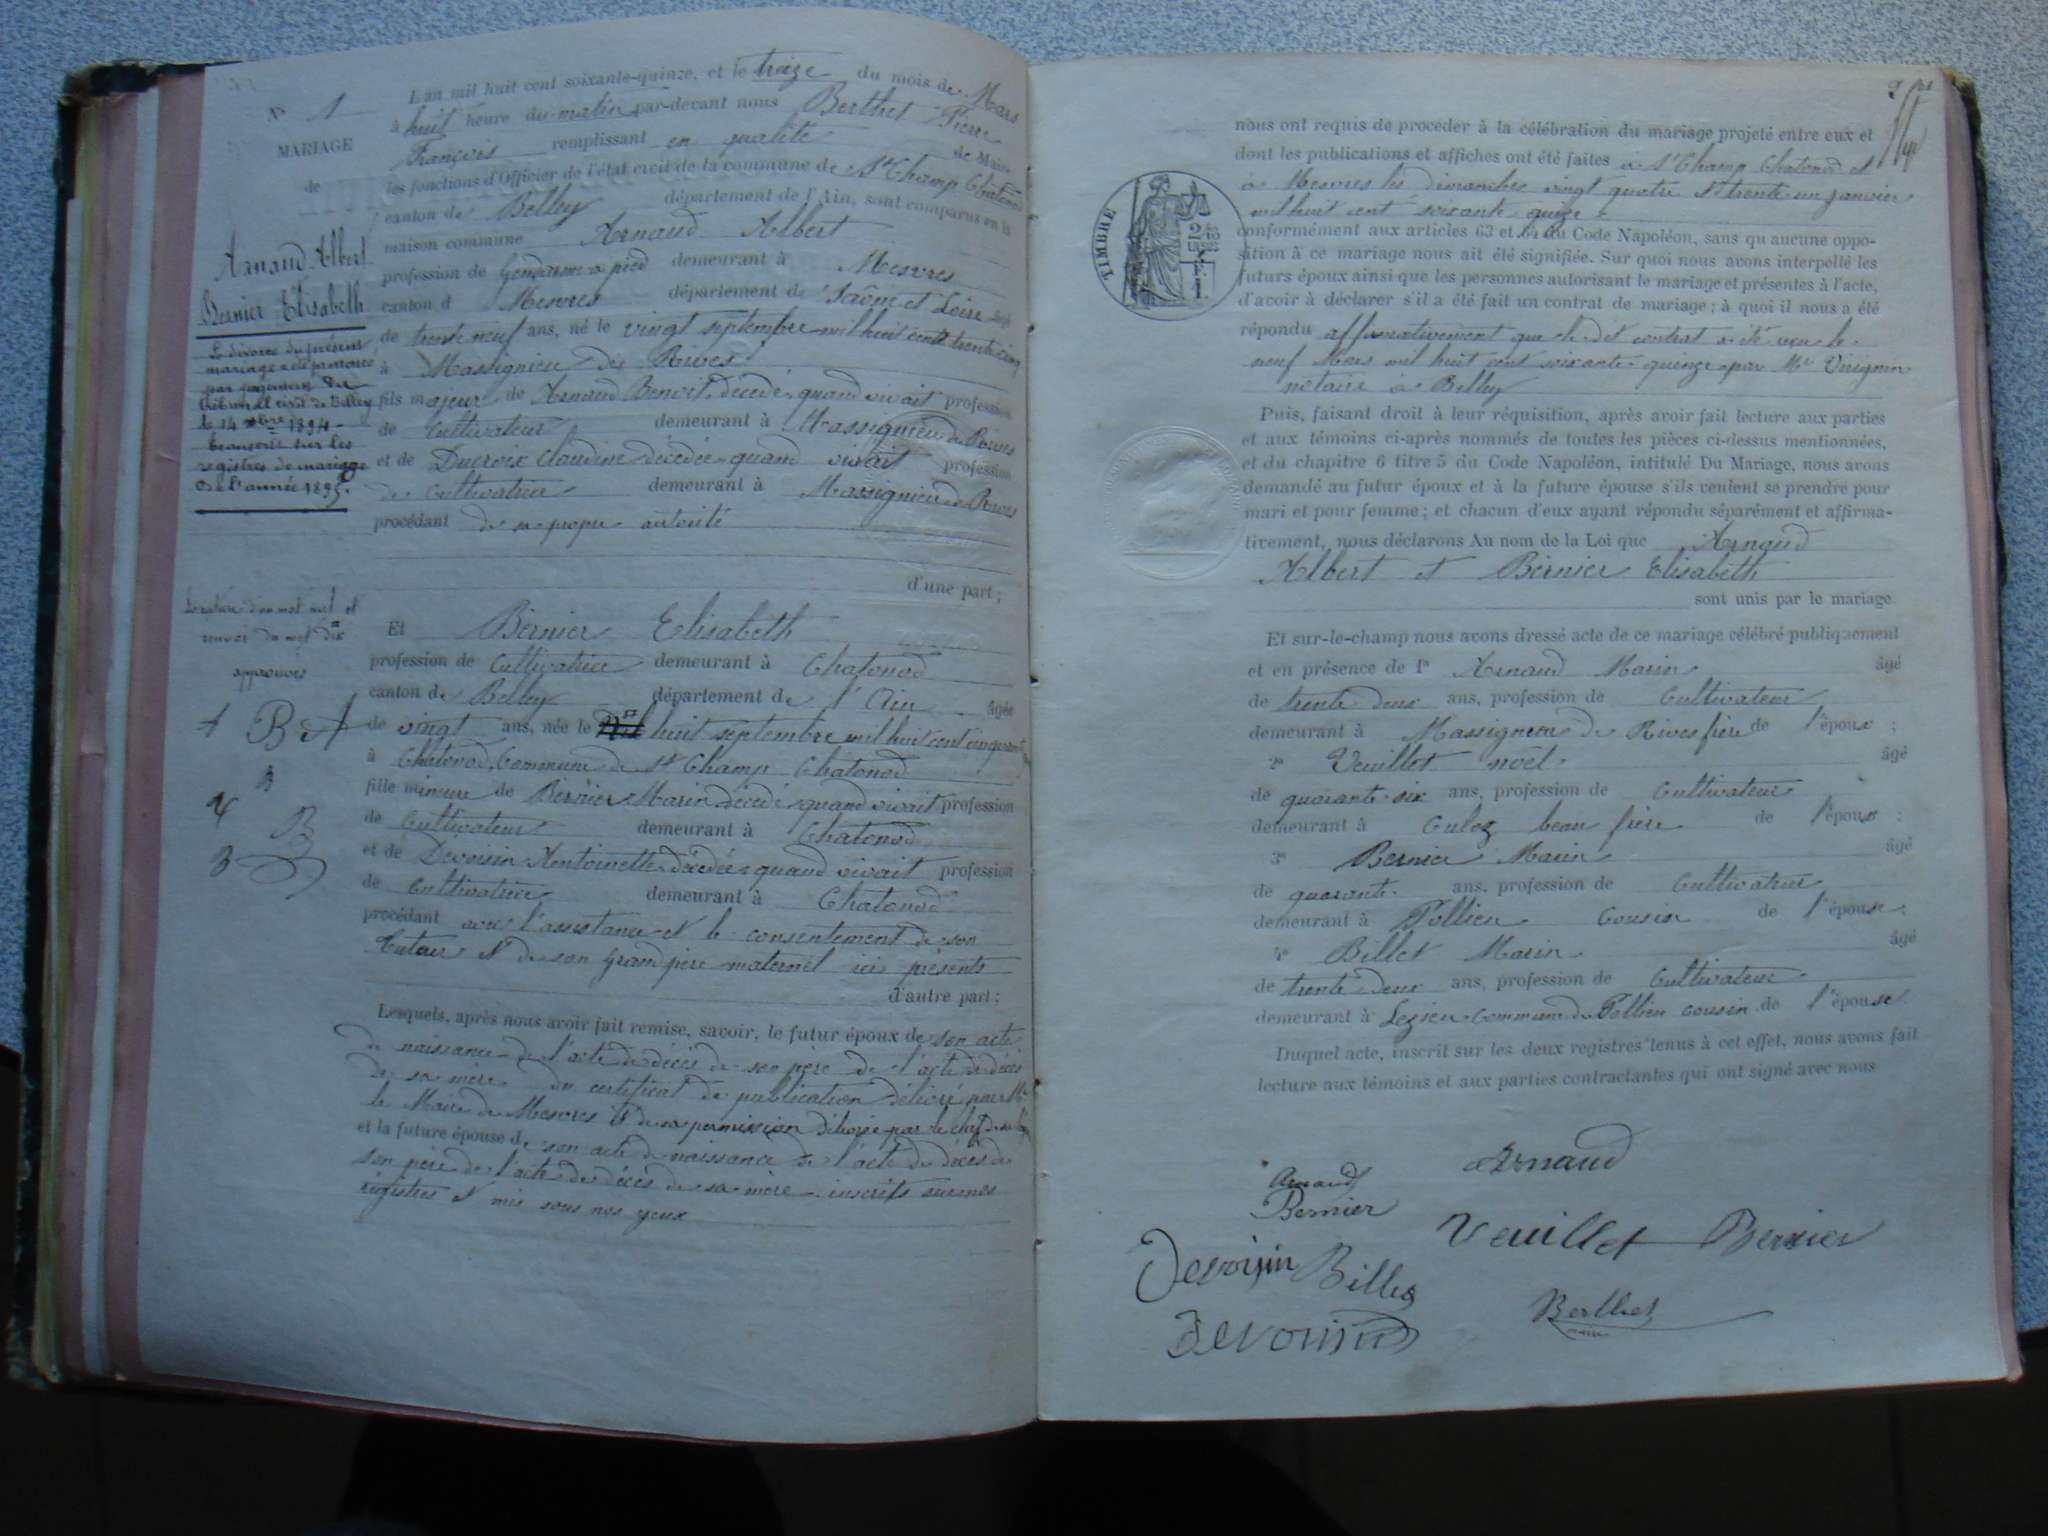 N° 1
MARIAGE
de
Arnaud Albert
Bernier Elisabeth
Le divorce du présent
mariage a été prononcé
par jugement du
tribunal civil de Belley
le 14 1894
transcrit sur les
registres de mariage
de l'année 1895.
mot nul et
renvoi du mot dix
approuvés
L'an mil huit cent soixante-quinze, et le treize du mois de Mars
à huit heure du matin par-devant nous Berthet Pierre
François remplissant en qualité de Maire
les fonctions d'Officier de l'état civil de la commune de St Champ Chatonod
canton de Belley département de l'Ain, sont comparus en la
maison commune Arnaud Albert
profession de Gendarme à pied demeurant à Mesvres
canton d Mesvres département de Saône et Loire âgé
de trente neuf ans, né le vingt septembre mil huit cent trente cinq
à Massignieu de Rives
fils majeur de Arnaud Benoit, décédé quand vivait profession
de Cultivateur demeurant à Massignieu de Rives
et de Ducroix Claudine décédée quand vivait profession
de Cultivatrice demeurant à Massignieu de Rives
procédant de sa propre autorité
d'une part;
Et Bernier Elisabeth
profession de Cultivatrice demeurant à Chatonod
canton de Belley département de l'Ain âgée
de vingt ans, née le huit septembre mil huit cent cinquante
à Chatonod, Commune de St Champ Chatonod
fille mineure de Bernier Marin décédé quand vivait profession
de Cultivateur demeurant à Chatonod
et de Devoisin Antoinette décédée quand vivait profession
de Cultivatrice demeurant à Chatonod
procédant avec l'assistance et le consentement de son
Tuteur et de son grand père maternel ici présents
d'autre part;
Lesquels, après nous avoir fait remise, savoir, le futur époux de son acte
de naissance de l'acte de décès de son père de l'acte de décès
de sa mère du certificat de publication délivré par Mr
le Maire de Mesvres et de sa permission délivrée par le chef de
et la future épouse de son acte de naissance de l'acte de décès de
son père de l'acte de décès de sa mère inscrits sur nos
régistres et mis sous nos yeux
nous ont requis de procéder à la célébration du mariage projeté entre eux et
dont les publications et affiches ont été faites à St Champ Chatonod et
à Mesvres les dimanches vingt quatre et trente un janvier
mil huit cent soixante quinze
conformément aux articles 63 et 64 du Code Napoléon, sans qu'aucune oppo-
sition à ce mariage nous ait été signifiée. Sur quoi nous avons interpellé les
futurs époux ainsi que les personnes autorisant le mariage et présentes à l'acte,
d'avoir à déclarer s'il a été fait un contrat de mariage; à quoi il nous a été
répondu affirmativement que le dit contrat a été reçu le
neuf Mars mil huit cent soixante quinze par Me Virignin
notaire à Belley
TIMBRE
Puis, faisant droit à leur réquisition, après avoir fait lecture aux parties
et aux témoins ci-après nommés de toutes les pièces ci-dessus mentionnées,
et du chapitre 6 titre 5 du Code Napoléon, intitulé Du Mariage, nous avons
demandé au futur époux et à la future épouse s'ils veulent se prendre pour
mari et pour femme; et chacun d'eux ayant répondu séparément et affirma-
tivement, nous déclarons Au nom de la Loi que Arnaud
Albert et Bernier Elisabeth
sont unis par le mariage.
Et sur-le-champ nous avons dressé acte de ce mariage célébré publiquement
et en présence de 1° Arnaud Marin âgé
de trente deux ans, profession de Cultivateur
demeurant à Massignieu de Rives frère de l'époux;
2° Veuillet noël âgé
de quarante six ans, profession de Cultivateur
demeurant à Culoz beau frère de l'époux;
3° Bernier Marin âgé
de quarante ans, profession de Cultivateur
demeurant à Pollieu Cousin de l'épouse;
4° Billet Marin âgé
de trente deux ans, profession de Cultivateur
demeurant à Lezieu Commune de Pollieu cousin de l'épouse.
Duquel acte, inscrit sur les deux registres tenus à cet effet, nous avons fait
lecture aux témoins et aux parties contractantes qui ont signé avec nous
Arnaud
Arnaud
Bernier
Veuillet Bernier
Devoisin Billet
Berthet
maire
Devoisin